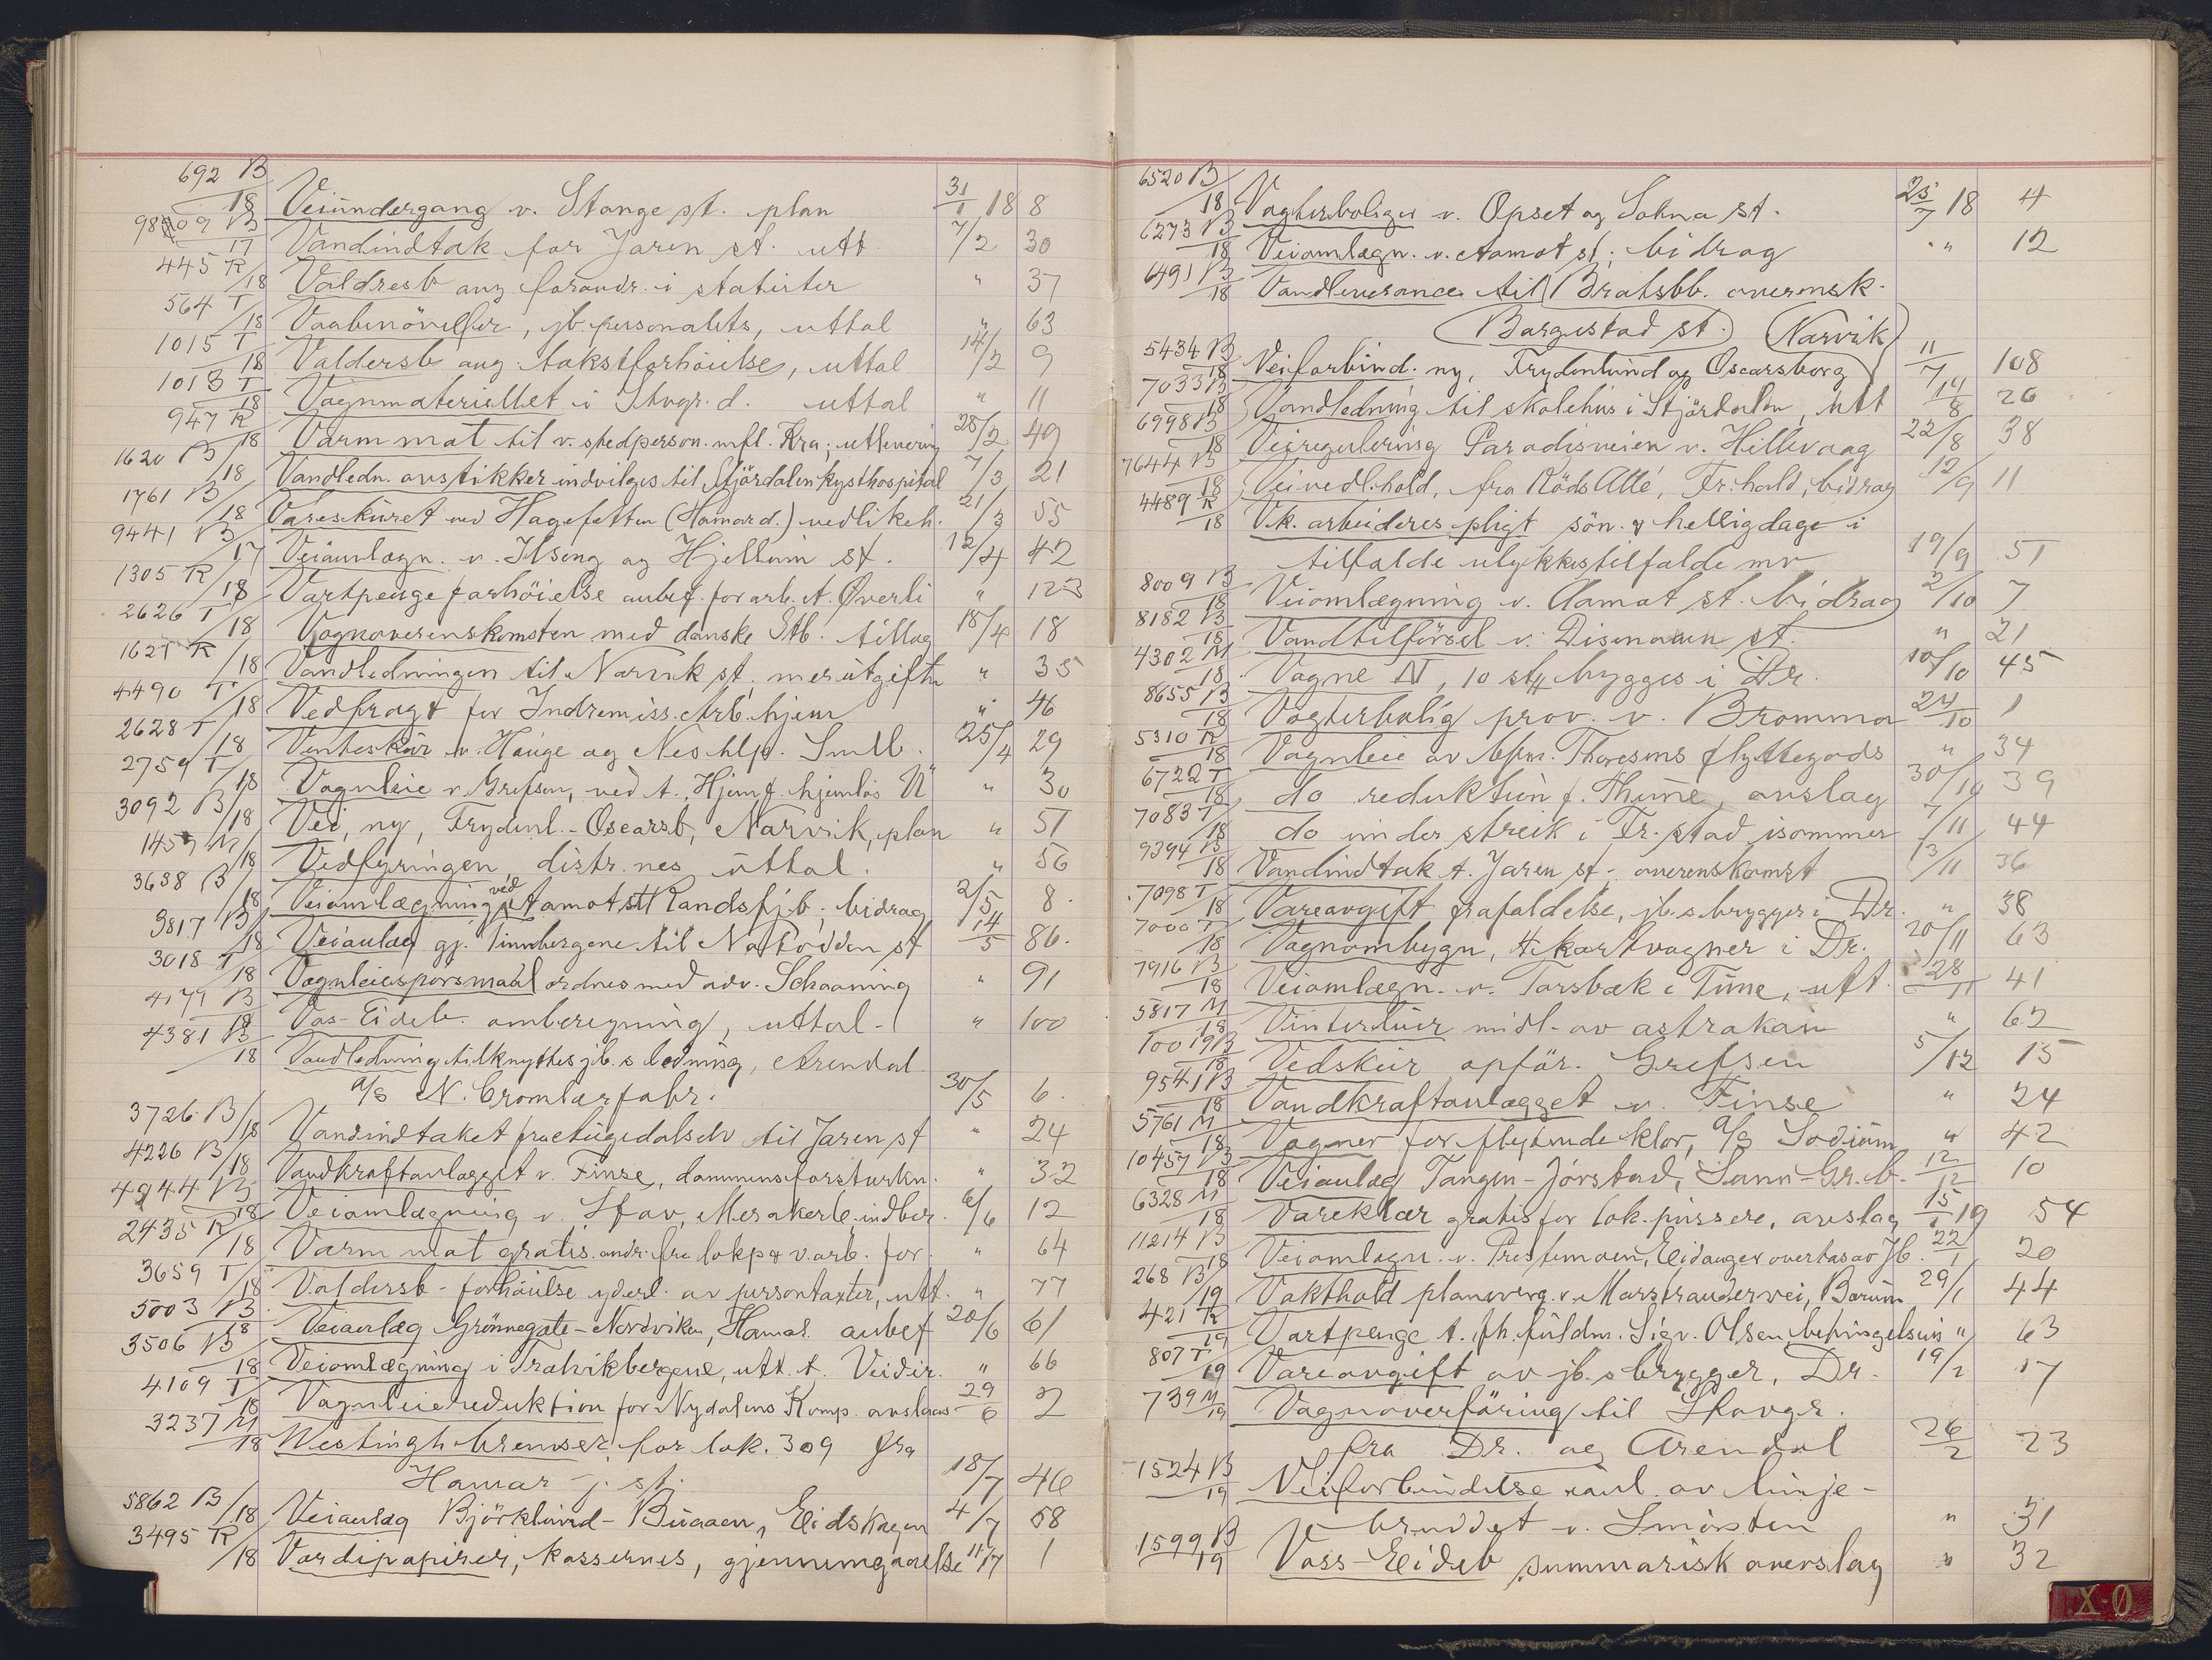 692 B/18 Veiundergang v. Stange st. plan 31/1 18 8
98409 B/17 Vandindtak for Jaren st. utt 7/2 30
445 R/18 Valdresb ang. forandr. i statuter " 37
564 T/18 Vaabenövelser, jb. personalets, uttal " 63
1015 T/18 Valdersb ang. takstforhöielse, uttal 14/2 9
1013 T/18 Vagnmateriellet i Stvgr. d. uttal " 11
947 R/18 Varm mat til v. stedperson. mfl. Kra; utlevering 28/2 49
1620 B/18 Vandledn. avstikker indvilges til Stjördalen kysthospital 7/3 21
1761 B/18 Vareskuret ved Hagefetten (Hamar d.) vedlikeh. 21/3 55
9441 B/17 Veiaulagn. v. Ilseng og Hjellum st. 12/4 42
1305 R/18 Vartpenge forhöielse anbef. for arb. A. Øverli " 123
2626 T/18 Vognoverenskomsten med danske Stb. tillæg 18/4 18
1621 R/18 Vandledningen til Narvik st. merutgifter " 35
4490 T/18 Vedfragt for Indremiss. Arb. hjem " 46
2628 T/18 Venteskur v. Hauge og Nes hlp. Smlb. 25/4 29
2759 T/18 Vagnleie v. Grefsen, ved t. Hjem f. hjemløs U " 30
3092 B/18 Vei, ny, Frydenl.-Oscarsb, Narvik, plan " 51
1459 M/18 Vedfyringen distr.nes uttal. " 56
3638 B/18 Veiomlægning ved Aamot st Randsfjb; bidrag 2/5 8.
3817 B/18 Veianlæg gj. Tinnbergene til Notodden st 14/5 86.
3018 T/18 Vagnleiespørsmaal ordnes med adv. Schaaning " 91
4171 B/18 Vos-Eideb. omberegning, uttal- " 100
4381 B/18 Vandledning tilknyttes jb.s ledning, Arendal
A/S N. Cromlærfabr. 30/5 6.
3726 B/18 Vandindtaket fra Augedalselv til Jaren st " 24
4226 B/18 Vandkraftanlægget v. Finse, dammens forsterkn. " 32
4944 B/18 Veiomlægning v. Stav, Merakerb. indber. 6/6 12
2435 R/18 Varm mat gratis andr. fra lokp & v.arb. for. " 64
3659 T/18 Valdersb- forhöielse yderl. av persontaxter, utt. " 77
5003 B/18 Veianlæg Grönnegate-Nordviken, Hamar. anbef 20/6 61
3506 B/18 Veiomlægning i Tratvikbergene, utt. t. Veidir. " 66
4109 T/18 Vagnleiereduktion for Nydalens Komp. avslaaes 29/6 2
3237 M/18 Westingh.bremser for lok. 309 fra
Hamar j. st. 18/7 46
5862 B/18 Veianlæg Björklund-Buaaen, Eidskogen 4/7 58
3495 R/18 Værdipapirer, kassernes, gjennemgaaelse 11/7 1
6520 B/18 Vagterboliger v. Opset og Sokna st. 25/7 18 4
6273 B/18 Veiomlægn. v. Aamot st; bidrag " 12
6491 B/18 Vandleverance til Bratsbb. overensk.
(Borgestad st.) (Narvik)
5434 B/18 Veiforbind. ny, Frydenlund og Oscarsborg 11/7 108
7033 B/18 Vandledning til skolehus i Stjördalen, utt 14/8 26
6998 B/18 Veiregulering Paradisveien v. Hillevaag 22/8 38
7644 B/18 Veivedl.hold, fra Röds Allé, Fr.hald, bidrag 12/9 11
4489 R/18 Vk. arbeideres pligt sön. & helligdage i
tilfælde ulykkestilfælde mv 19/9 51
8009 B/18 Veiomlægning v. Aamot st. bidrag 2/10 7
8182 B/18 Vandtilförsel v. Disenaaen st. " 21
4302 M/18 Vogne N, 10 stk bygges i Dr. 10/10 45
8655 B/18 Vogterbolig prov. v. Bromma 24/10 1
5310 R/18 Vognleie av bfm. Thoresens flyttegods " 34
6722 T/18 do reduktion f. Thune, avslag 30/10 39
7083 T/18 do under streik i Fr.stad isommer 7/11 44
9394 B/18 Vandindtak t. Jaren st- overenskomst 13/11 36
7098 T/18 Vareavgift frafaldelse, jb.s brygger i Dr. " 38
7000 T/18 Vagnombygn, til kartvagner i Dr. 20/11 63
7916 B/18 Veiomlægn. v. Torsbæk i Time, utt. 28/11 41
5817 M/18 Vinterluer midl. av astrakan " 62
10019 B/18 Vedskur opför. Grefsen 5/12 15
9541 B/18 Vandkraftanlægget v. Finse " 24
5761 M/18 Vagner for flytende klor, A/S Sodium " 42
10457 B/18 Veianlæg Tangen-Jørstad, Sunn-Gr.b. 12/12 10
6328 M/18 Vareklær gratis for lok. pussere, avslag 15/1 19 54
11214 B/18 Veiomlægn. v. Prestemoen, Eidanger overtas av Jb. 22/1 20
268 B/19 Vakthold planoverg. v. Marstranderwei, Bærum 29/1 44
421 R/19 Vartpenge t. fh. fuldm. Sigv. Olsen, betingelsen " 63
807 T/19 Vareavgift av jb.s brygger, Dr. 19/2 17
739 M/19 Vagnoverföring til Stavgr.
fra Dr. og Arendal 26/2 23
1524 B/19 Veiforbindelse anl. av linje-
bruddet v. Smörsten " 31
1599 B/19 Voss-Eideb summarisk overslag " 32
X-Ø